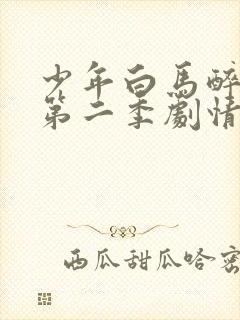 少年白馬醉
第二季劇情
西瓜甜瓜哈密